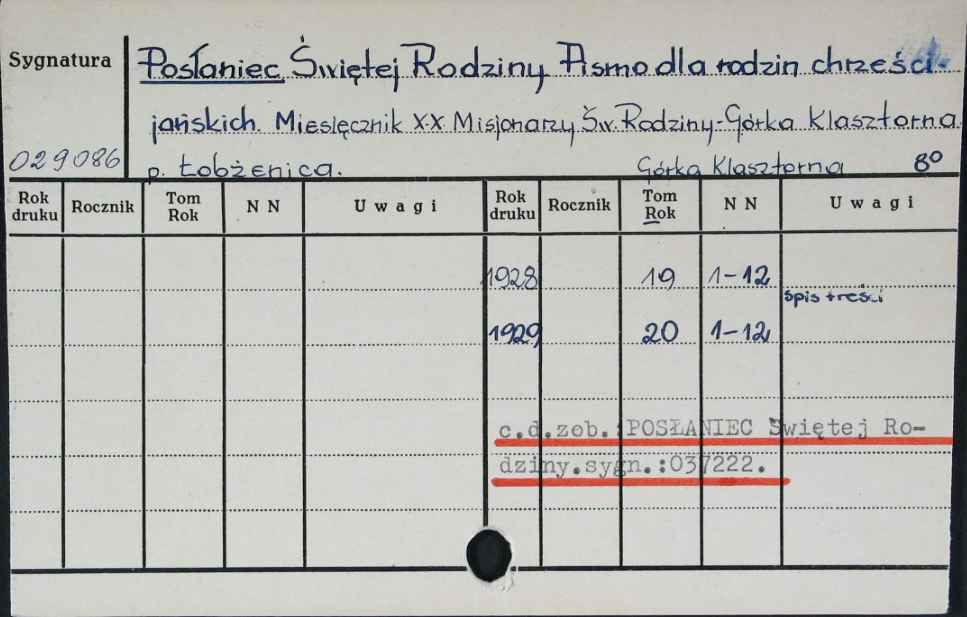 Sygnatura
Posłaniec Świętej Rodziny Pismo dla rodzin chrześci-
jańskich. Miesięcznik XX Misjonarzy Św. Rodziny-Górka Klasztorna
029086 p. Łobżenica. Górka Klasztorna 8°
Rok druku Rocznik Tom Rok N N Uwagi Rok druku Rocznik Tom Rok N N Uwagi
1928 19 1-12
spis treści
1929 20 1-12
c.d.zob.:POSŁANIEC Świętej Ro-
dziny.sygn.:037222.